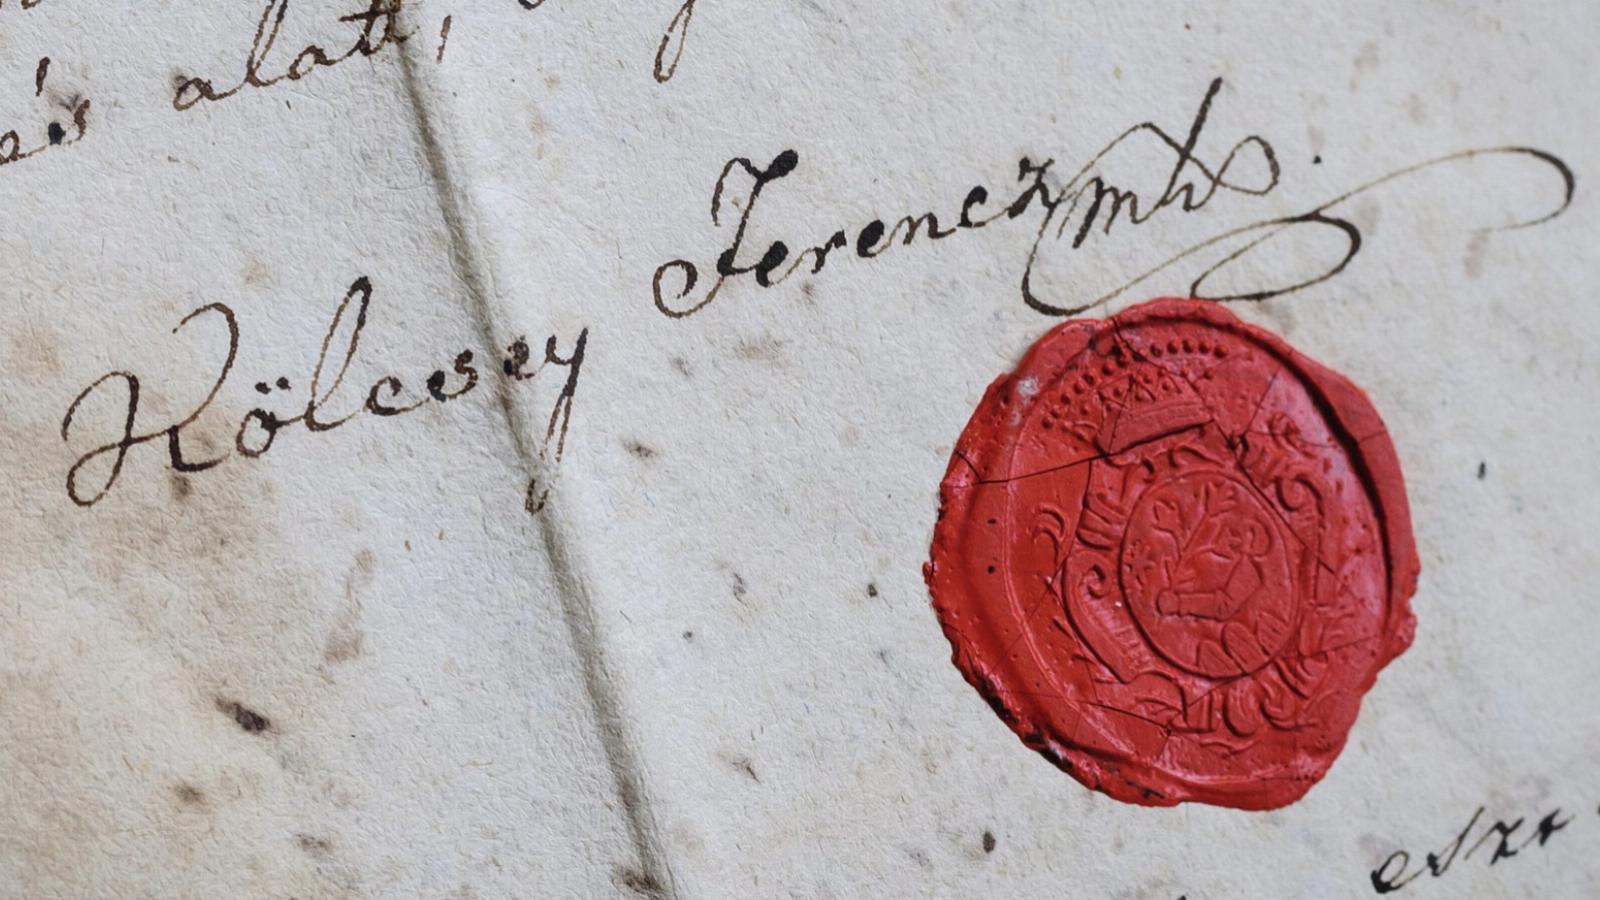 és alatt,
Kölcsey Ferencz mk.